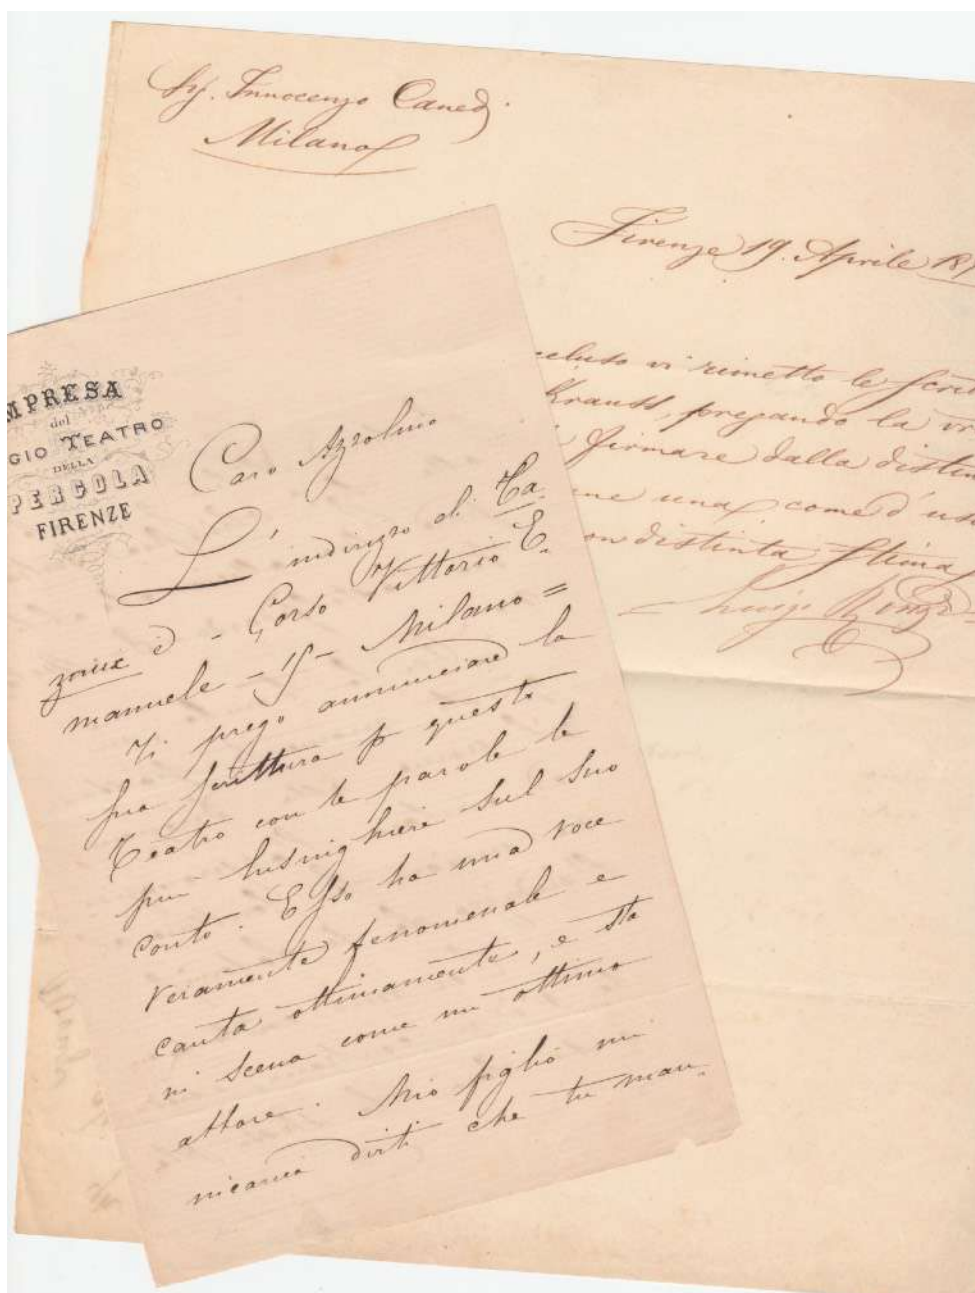 Sig. Innocenzo Canedi
Milano
Firenze 19. Aprile 18
cluso vi rimetto le scri
Krauss, pregando la vr
firmare dalla distin
ne una come d'us
on distinta stima
Luigi Ronzi
MPRESA
del
GIO TEATRO
DELLA
PERGOLA
FIRENZE
Caro Azzolino
L'indirizzo di Ca
è - Corso Vittorio E.
manuele - 15 - Milano =
Ti prego annunciare la
sua scrittura p questo
Teatro con le parole le
più lusinghiere sul suo
conto. Esso ha una voce
veramente fenomenale e
canta ottimamente, e sta
in scena come un ottimo
attore. Mio figlio mi
incarica dirti che tu man-